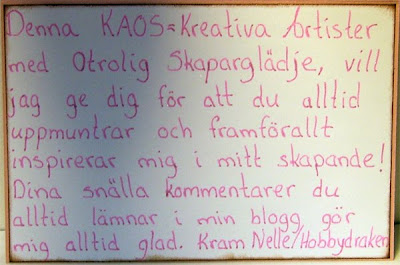 Denna KAOS=Kreativa Artister
med Otrolig Skaparglädje, vill
jag ge dig för att du alltid
uppmuntrar och framförallt
inspirerar mig i mitt skapande!
Dina snälla kommentarer du
alltid lämnar i min blogg gör
mig alltid glad. Kram Nelle/Hobbydraken